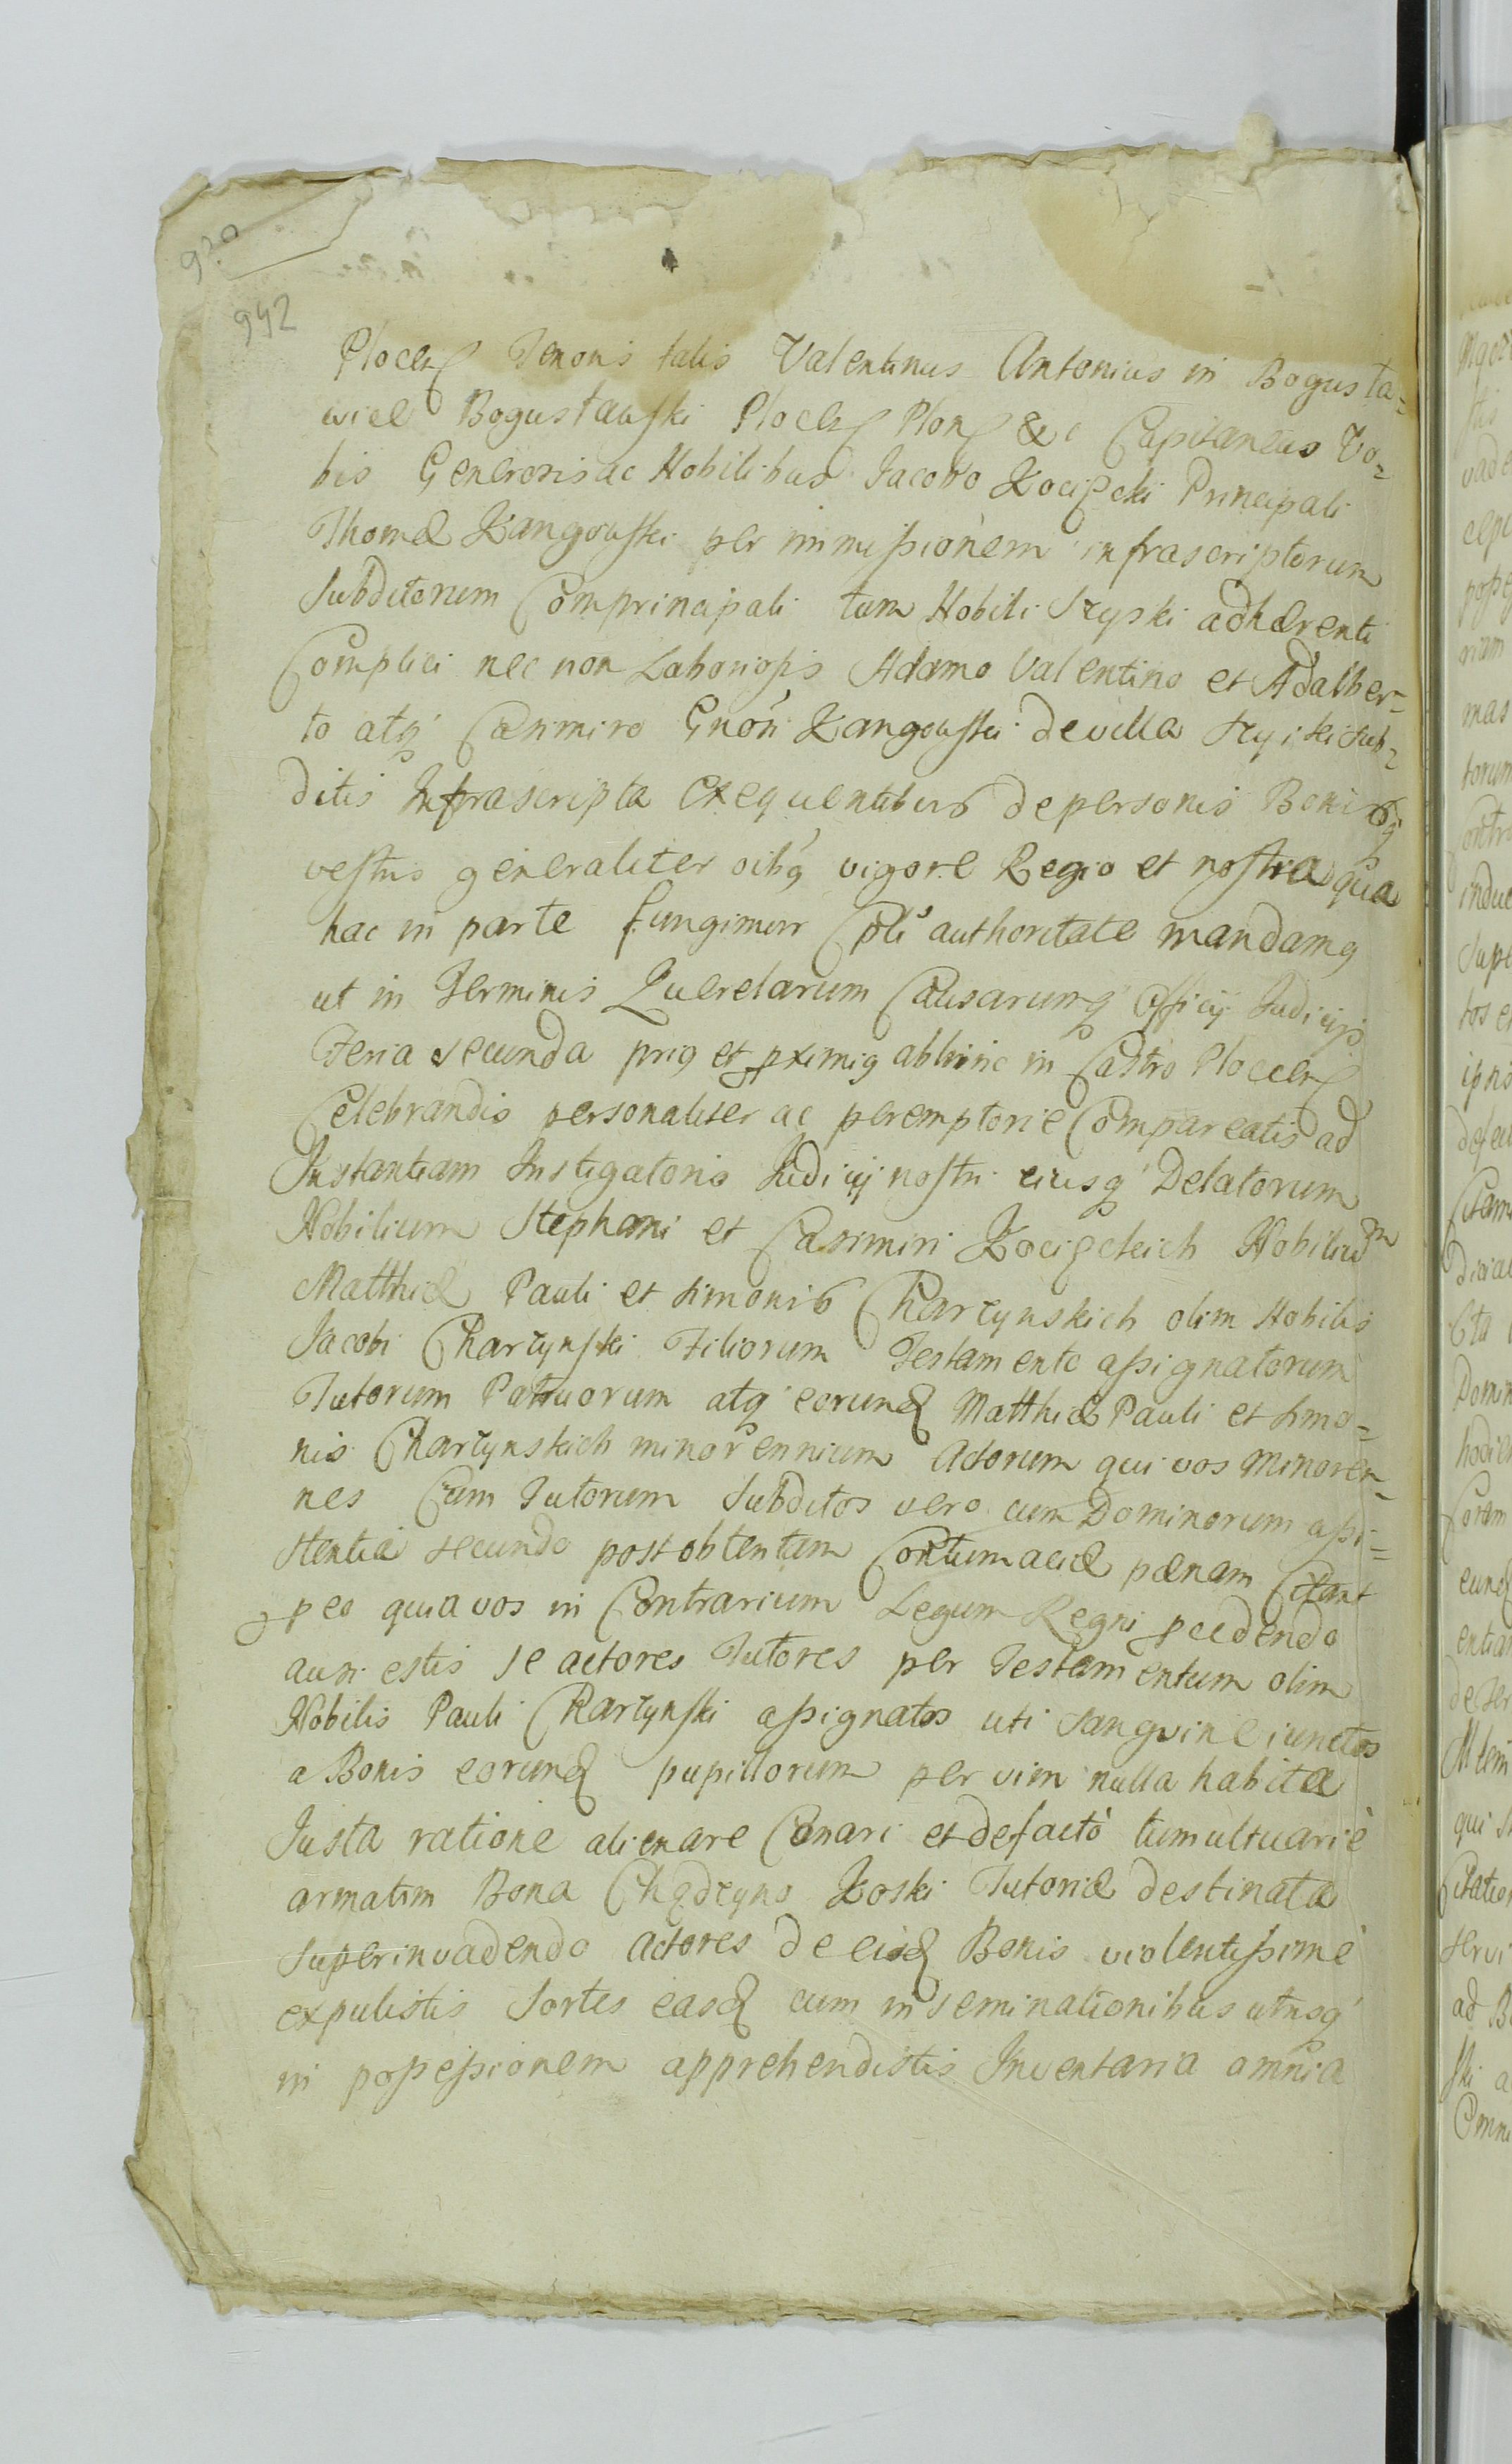 920
942
Plocen Tenoris talis Valentinus Antonius in Bogusła=
wice Bogusławski Plocen Plonen &c Capitaneus Vo=
bis Generosis ac Nobilibus Jacobo Kocięcki Principali
Thomæ Kangowski per immissionem infrascriptorum
Subditorum Comprincipali tum Nobili Szyski adhærenti
Complici nec non Laboriosis Adamo Valentino et Adalber=
to atq́ Casimiro Gnósi Kangowski de villa Szyiki Sub=
ditis Infrascripta Exequentibus de personis Bonisq́
vestris generaliter oibq́ vigore Regio et nostra qua
hac in parte fungimur Cpli authoritate mandamq
ut in Terminis Querelarum Causarumq́ Officij Judicijs
Feria secunda priq et pximiq abhinc in Castro Plocen
Celebrandis personaliter ac peremptorie Compareatis ad
Instantiam Instigatoris Judicij nostri eiusq́ Delatorum
Nobilium Stephani et Casimiri Kocięckich Nobiliūm
Matthiæ Pauli et Simonis Charzynskich olim Nobilis
Jacobi Charzynski Filiorum Testamento assignatorum
Tutorum Patruorum atq́ eorund Matthiæ Pauli et Simo=
nis Charzynskich minorennium Actorum qui vos Minoren=
nes Cum Tutorum Subditos vero cum Dominorum assi=
stentia secundo post obtentam Contumaciæ pænam Citant
p eo quia vos in Contrarium Legum Regni pcedendo
ausi estis se actores Tutores per Testamentum olim
Nobilis Pauli Charzynski assignatos uti Sanguine iunctos
a Bonis eorund pupillorum per vim nulla habita
Justa ratione alienare Conari et de facto tumultuariè
armatim Bona Chądzyno Koski Tutoriæ destinata
Superinvadendo actores de eisd Bonis violentissimè
expulistis Sortes easd cum inseminationibus utrisq́
in possessionem apprehendistis Inventaria omnia